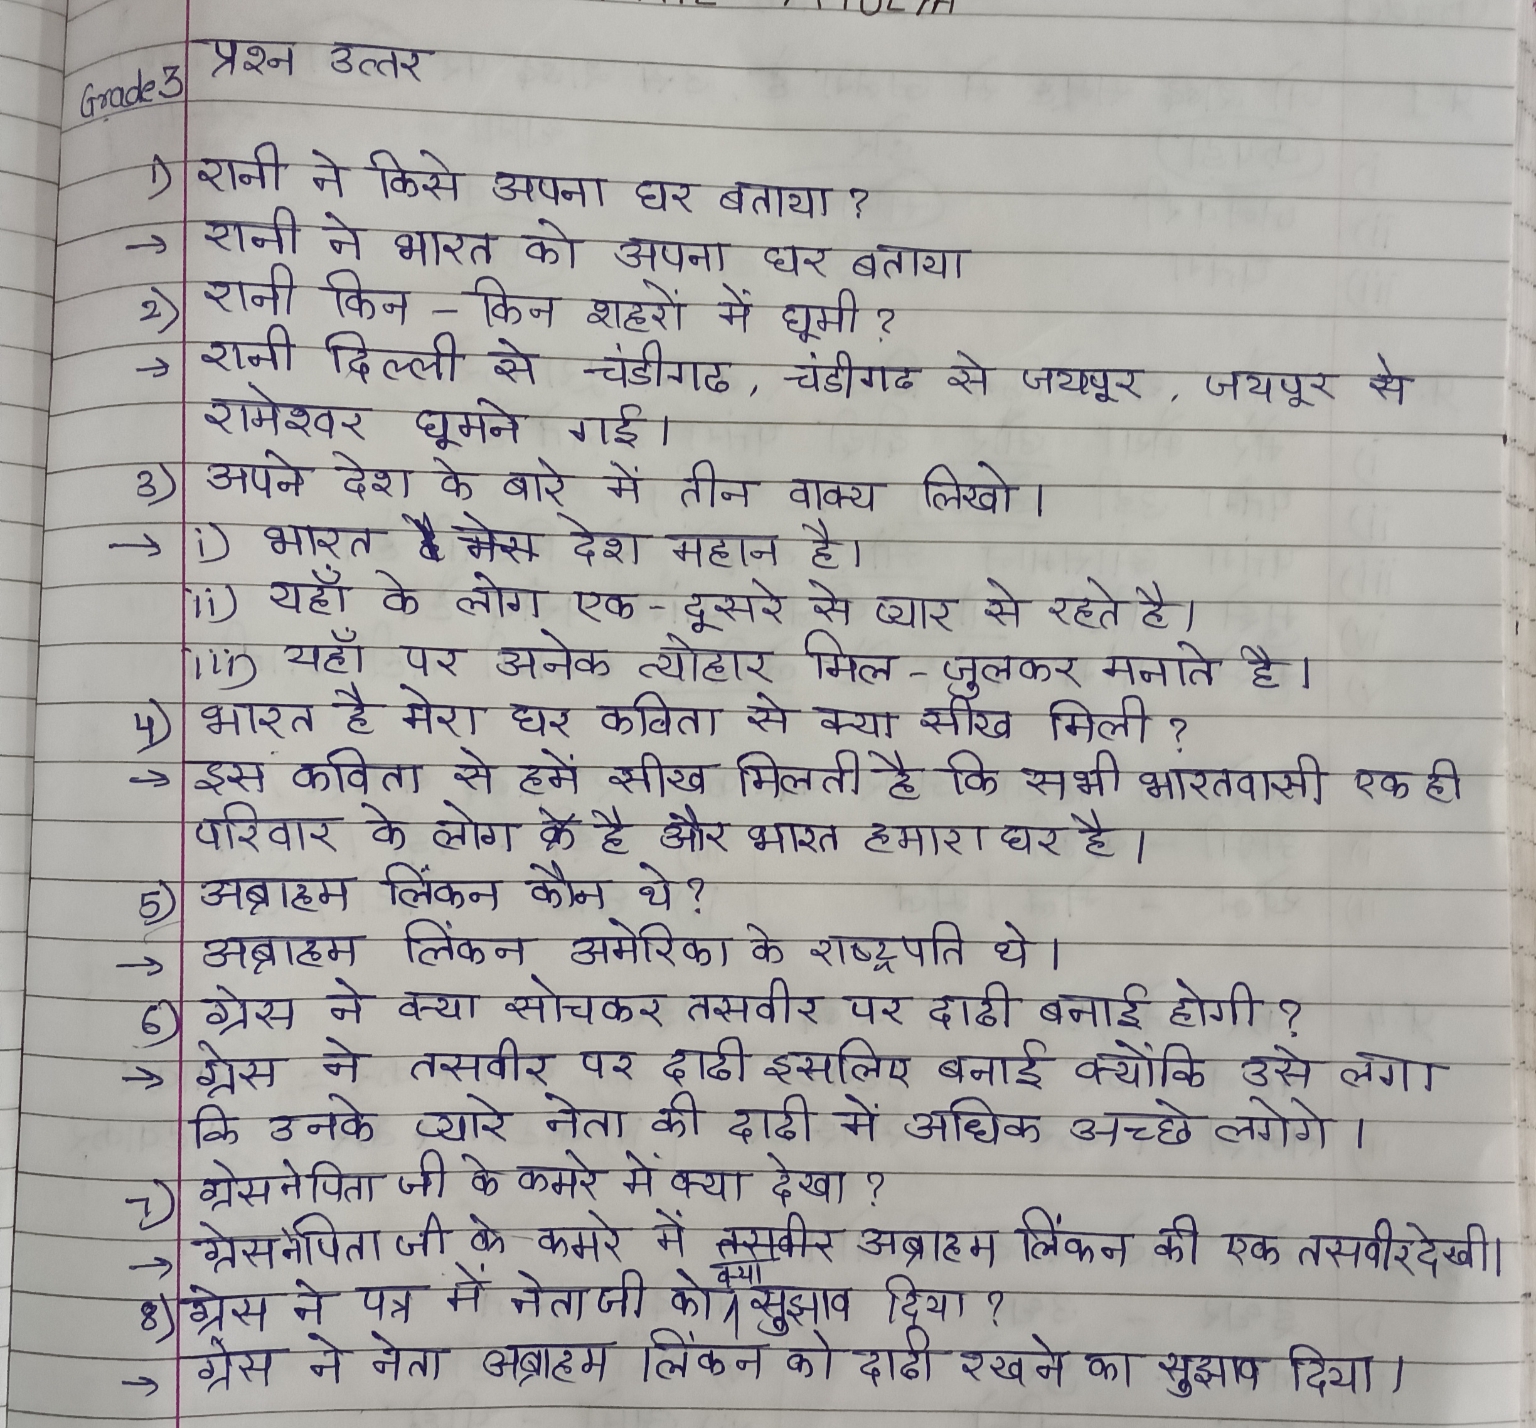 प्रश्न उत्तर
Grade 3
1) रानी ने किसे अपना घर बताया?
→ रानी ने भारत को अपना घर बताया
2) रानी किन - किन शहरों में घूमी?
→ रानी दिल्ली से चंडीगढ, चंडीगढ से जयपूर, जयपूर से
रामेश्वर घूमने गई।
3) अपने देश के बारे में तीन वाक्य लिखो।
→ i) भारत है मेरा देश महान है।
ii) यहाँ के लोग एक-दूसरे से प्यार से रहते है।
iii) यहाँ पर अनेक त्योहार मिल-जुलकर मनाते है।
4) भारत है मेरा घर कविता से क्या सीख मिली?
→ इस कविता से हमें सीख मिलती है कि सभी भारतवासी एक ही
परिवार के लोग के है और भारत हमारा घर है।
5) अब्राहम लिंकन कौन थे?
→ अब्राहम लिंकन अमेरिका के राष्ट्रपति थे।
6) ग्रेस ने क्या सोचकर तसवीर पर दाढी बनाई होगी?
→ ग्रेस ने तसवीर पर दाढी इसलिए बनाई क्योंकि उसे लगा
कि उनके प्यारे नेता की दाढी में अधिक अच्छे लगेगे।
7) ग्रेस ने पिता जी के कमरे में क्या देखा?
→ ग्रेस ने पिता जी के कमरे में तसवीर अब्राहम लिंकन की एक तसवीर देखी।
8) ग्रेस ने पत्र में नेताजी को क्या सुझाव दिया?
→ ग्रेस ने नेता अब्राहम लिंकन को दाढी रखने का सुझाव दिया।